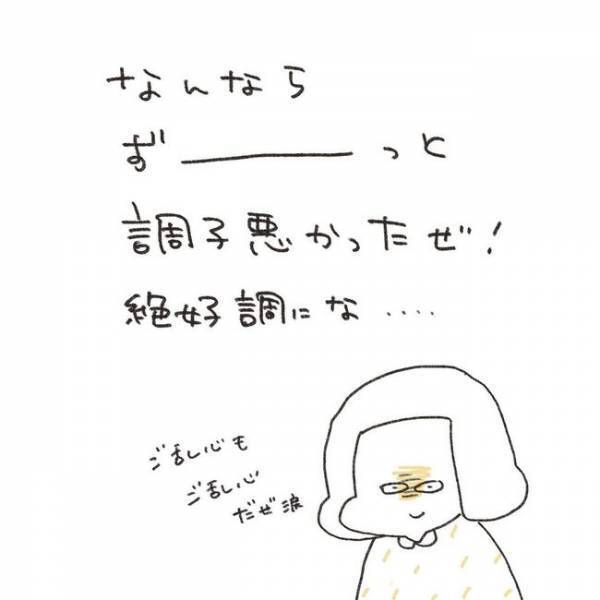 なんなら
ずーーーっと
調子悪かったぜ！
絶好調にな‥‥
ご乱心も
ご乱心
だぜ涙